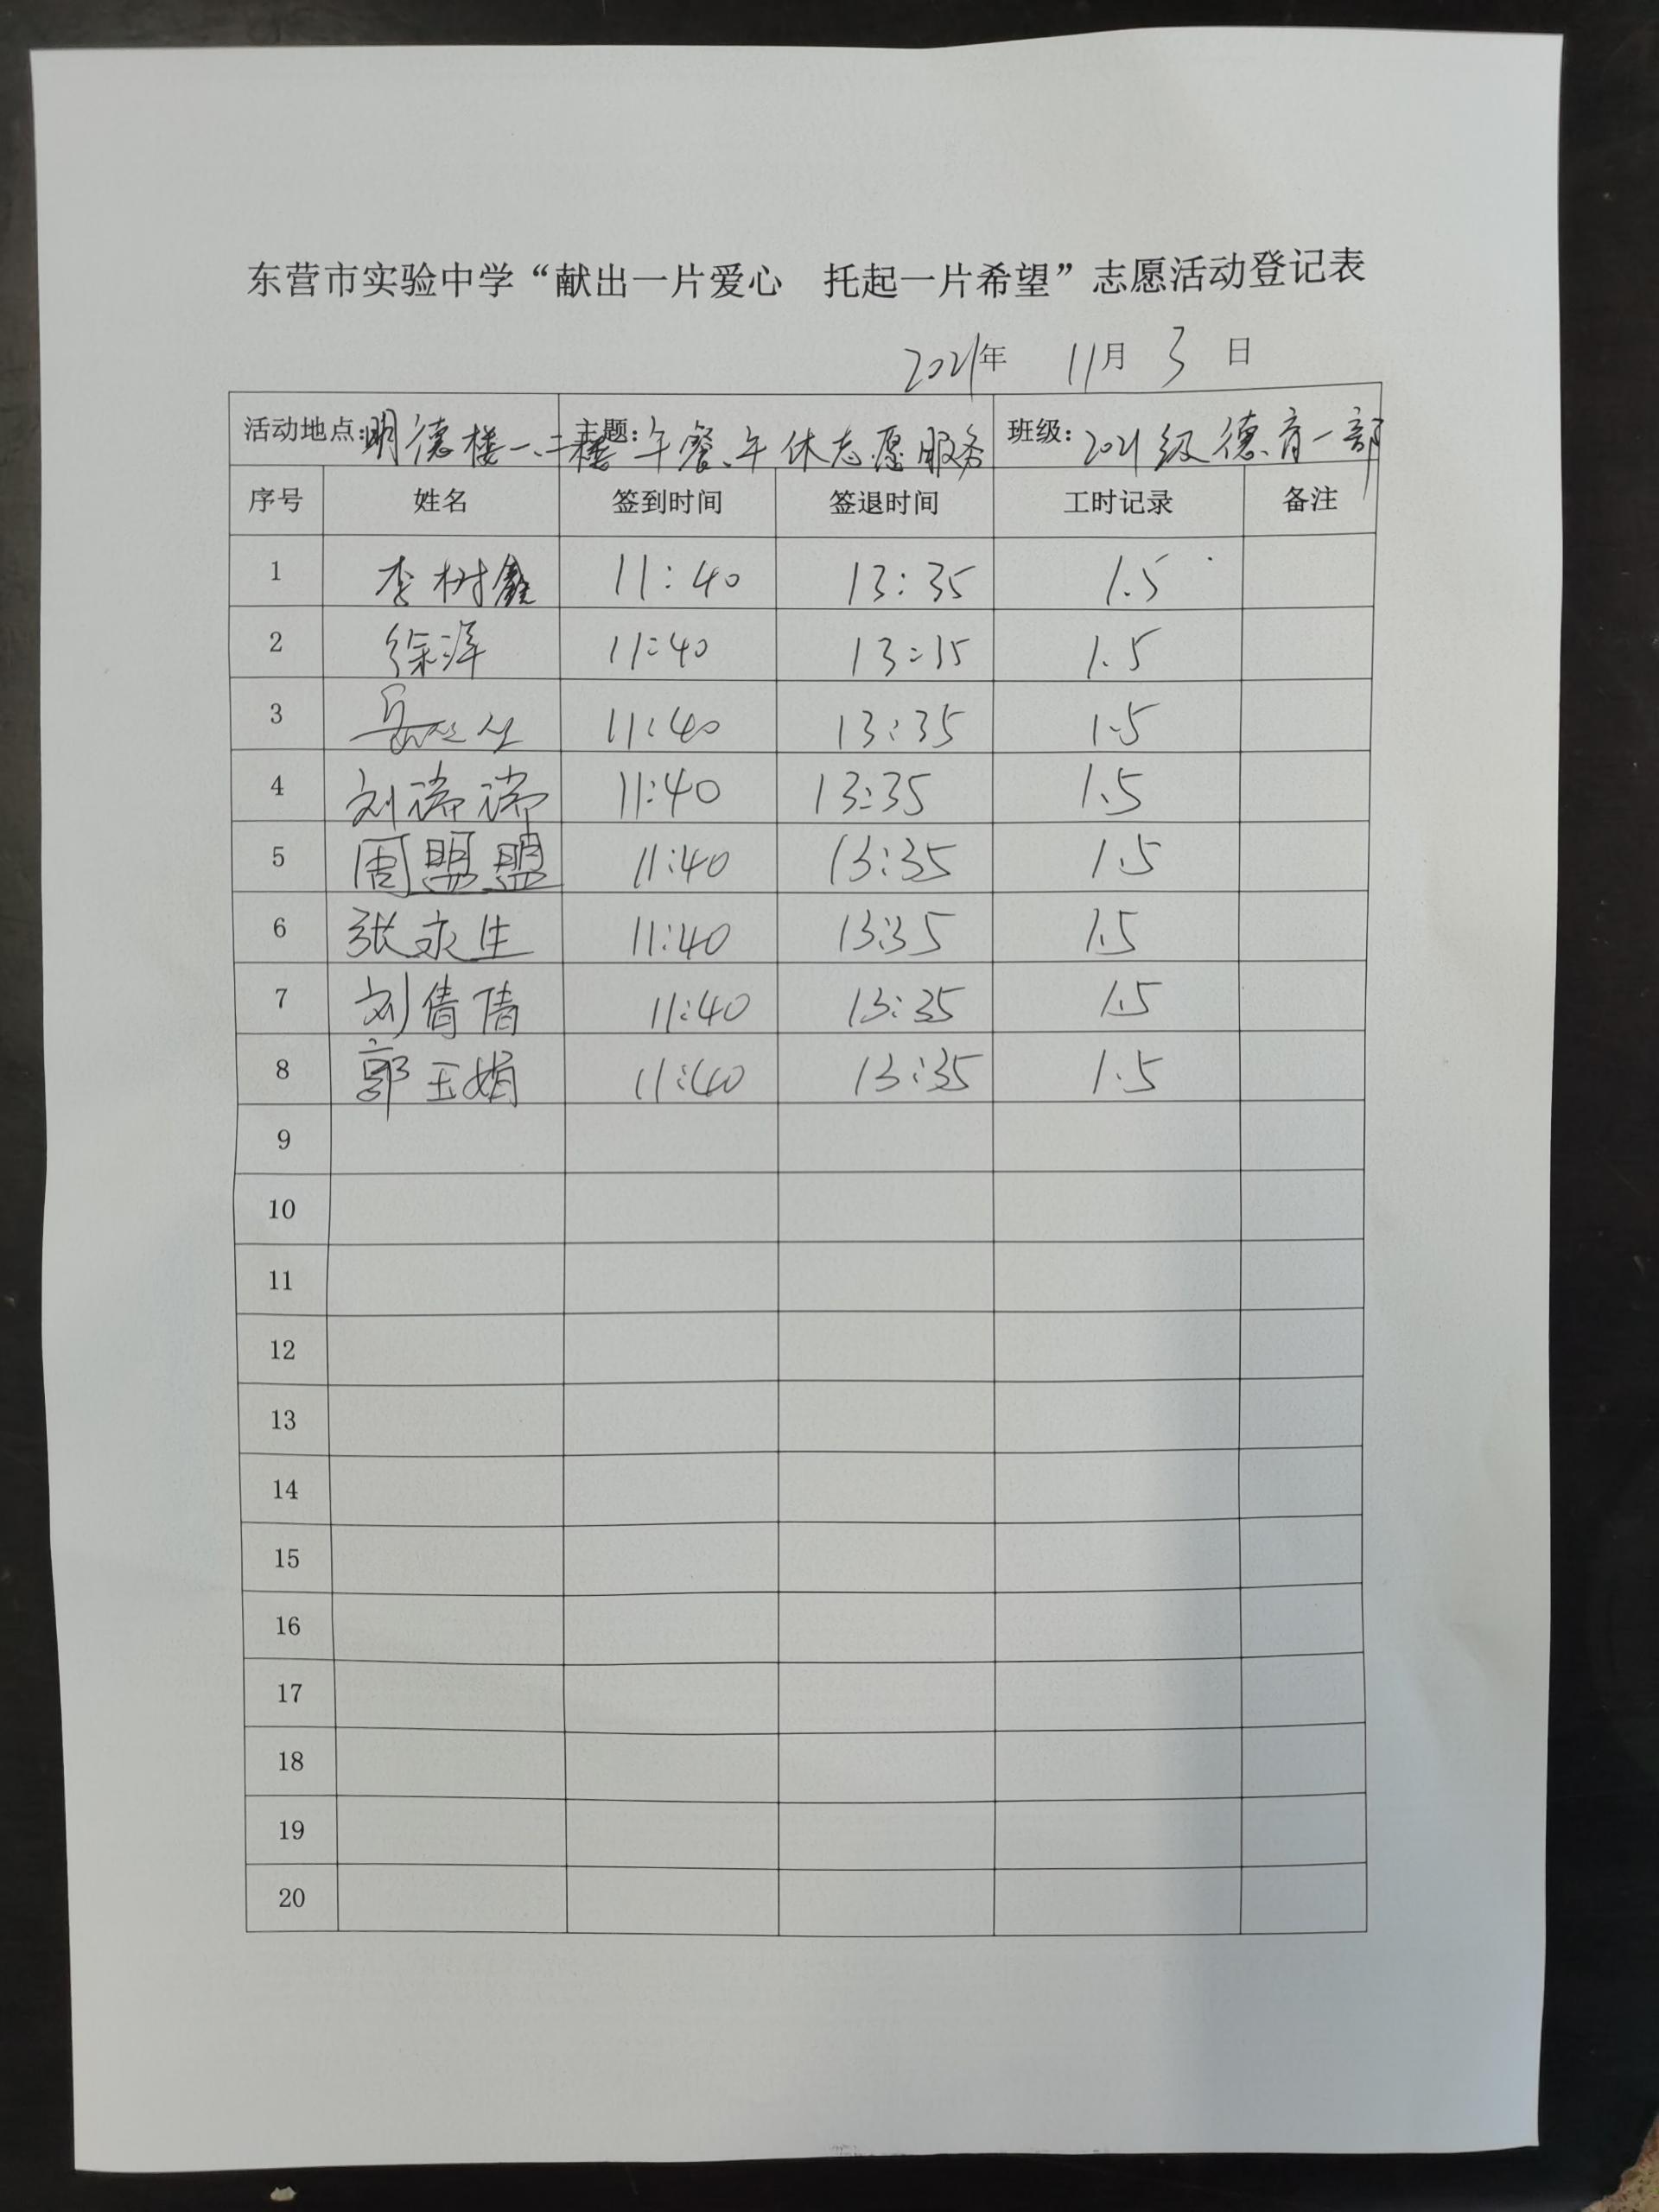 东营市实验中学“献出一片爱心 托起一片希望”志愿活动登记表
2021年 11月 3 日
活动地点:明德楼一、二楼 主题:午餐、午休志愿服务 班级:2021级德育一部
序号 姓名 签到时间 签退时间 工时记录 备注
1 李树鑫 11:40 13:35 1.5
2 徐洋 11:40 13:35 1.5
3 11:40 13:35 1.5
4 刘瑞瑞 11:40 13:35 1.5
5 周盟盟 11:40 13:35 1.5
6 张永生 11:40 13:35 1.5
7 刘倩倩 11:40 13:35 1.5
8 郭玉娟 11:40 13:35 1.5
9
10
11
12
13
14
15
16
17
18
19
20